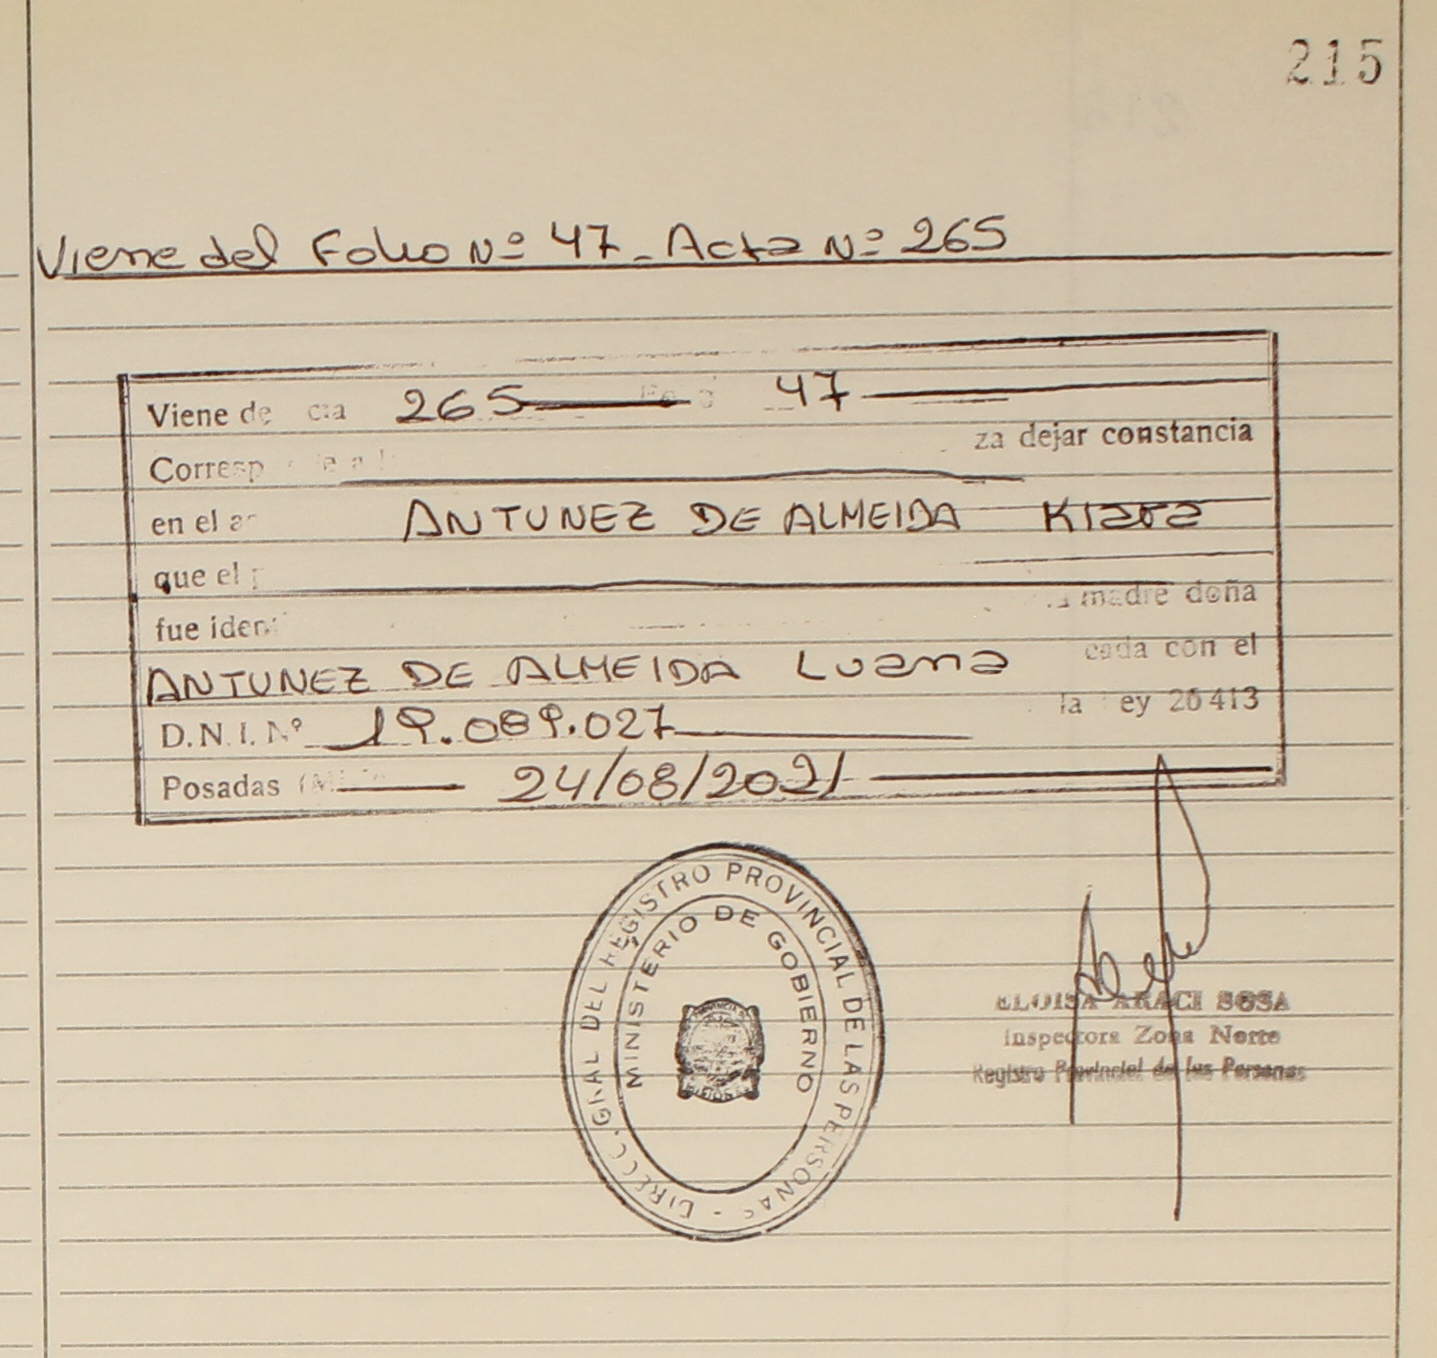 215
Viene del Folio Nº 47 - Acta Nº 265
Viene de cta 265 47
za dejar constancia
Corresp
en el ANTUNEZ DE ALMEIDA Kiara
que el
madre doña
fue iden
cada con el
ANTUNEZ DE ALMEIDA Luana
la ey 26413
D.N.I. Nº 19.089.027
Posadas 24/08/2021
DIRECC. GRAL DEL REGISTRO PROVINCIAL DE LAS PERSONAS -
MINISTERIO DE GOBIERNO
ELOISA ARACI SOSA
Inspectora Zona Norte
Registro Provincial de las Personas